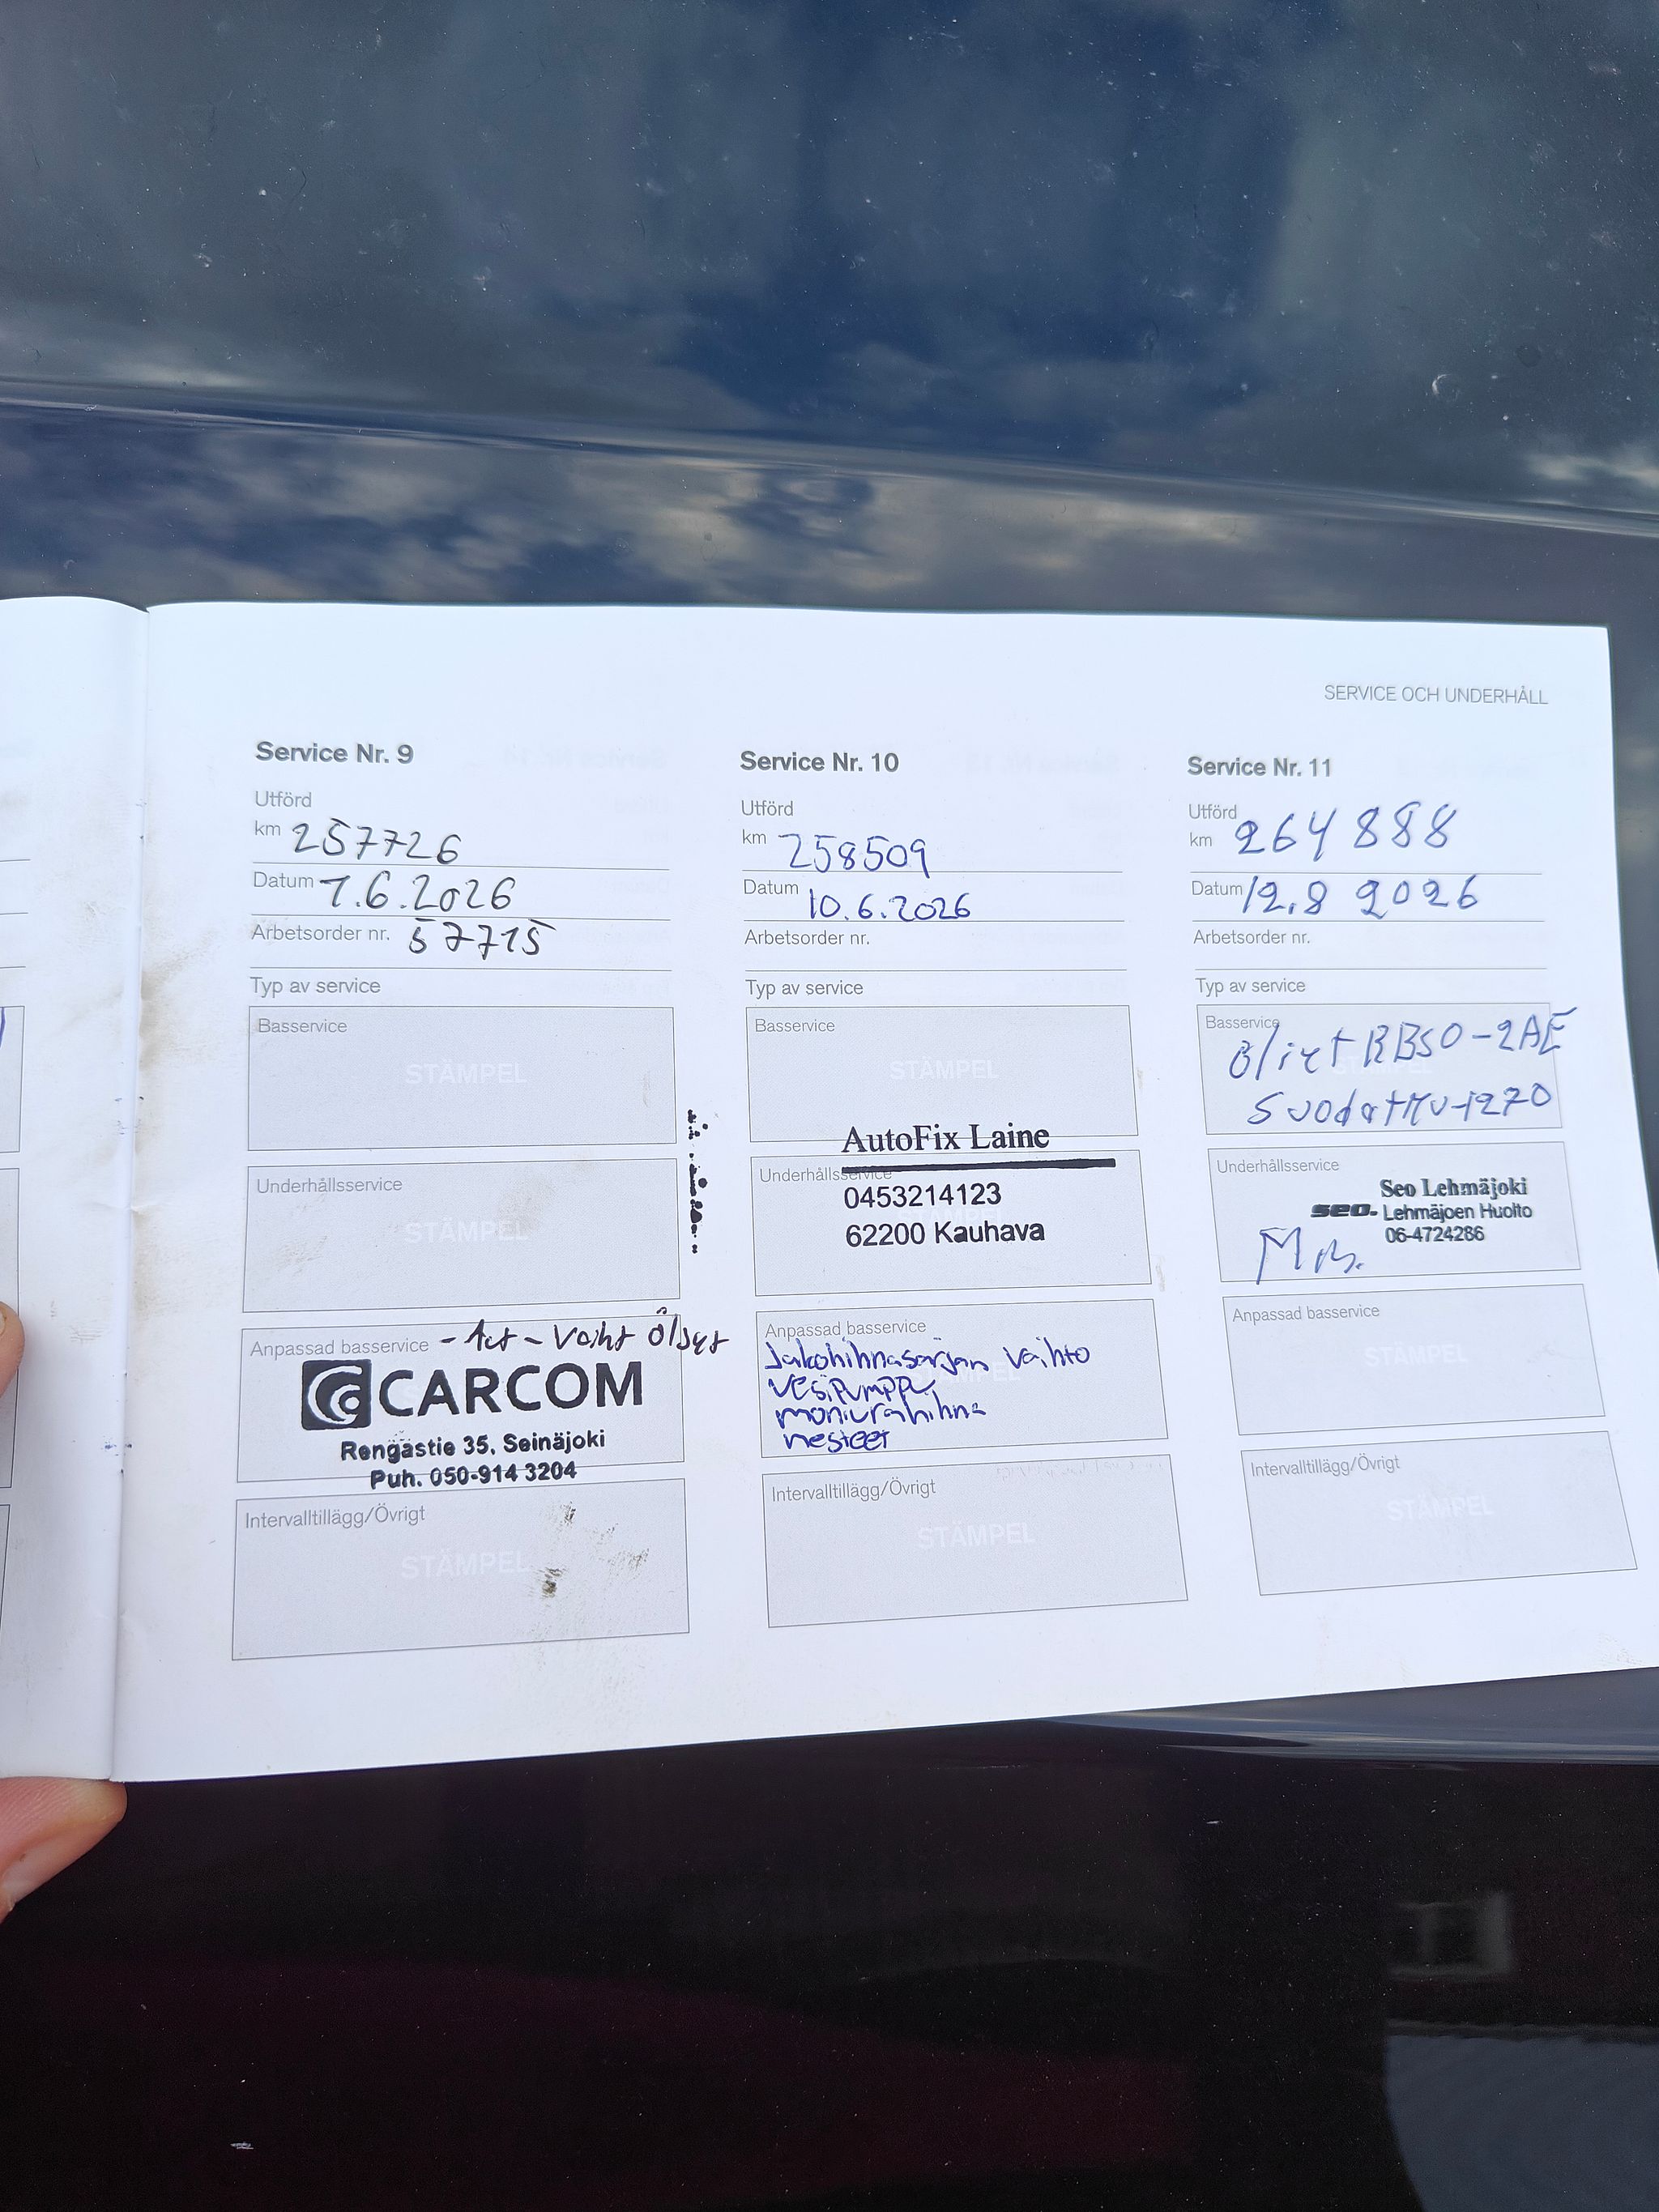 SERVICE OCH UNDERHÅLL
Service Nr. 9
Utförd
km 257726
Datum 1.6.2026
Arbetsorder nr. 57715
Typ av service
Basservice
STÄMPEL
Underhållsservice
STÄMPEL
Anpassad basservice - Aut - Vaiht Öljyt
CARCOM
Rengastie 35, Seinäjoki
Puh. 050-914 3204
Intervalltillägg/Övrigt
STÄMPEL
Service Nr. 10
Utförd
km 258509
Datum 10.6.2026
Arbetsorder nr.
Typ av service
Basservice
STÄMPEL
AutoFix Laine
Underhållsservice
0453214123
62200 Kauhava
Anpassad basservice
Jakohihnasarjan vaihto
vesipumppu
moniurahihna
nesteet
Intervalltillägg/Övrigt
STÄMPEL
Service Nr. 11
Utförd
km 264888
Datum 12.8 2026
Arbetsorder nr.
Typ av service
Basservice
Öljyt RBSO-2AE
Suodat MV-1270
Underhållsservice
Seo Lehmäjoki
seo. Lehmäjoen Huolto
06-4724286
Anpassad basservice
STÄMPEL
Intervalltillägg/Övrigt
STÄMPEL